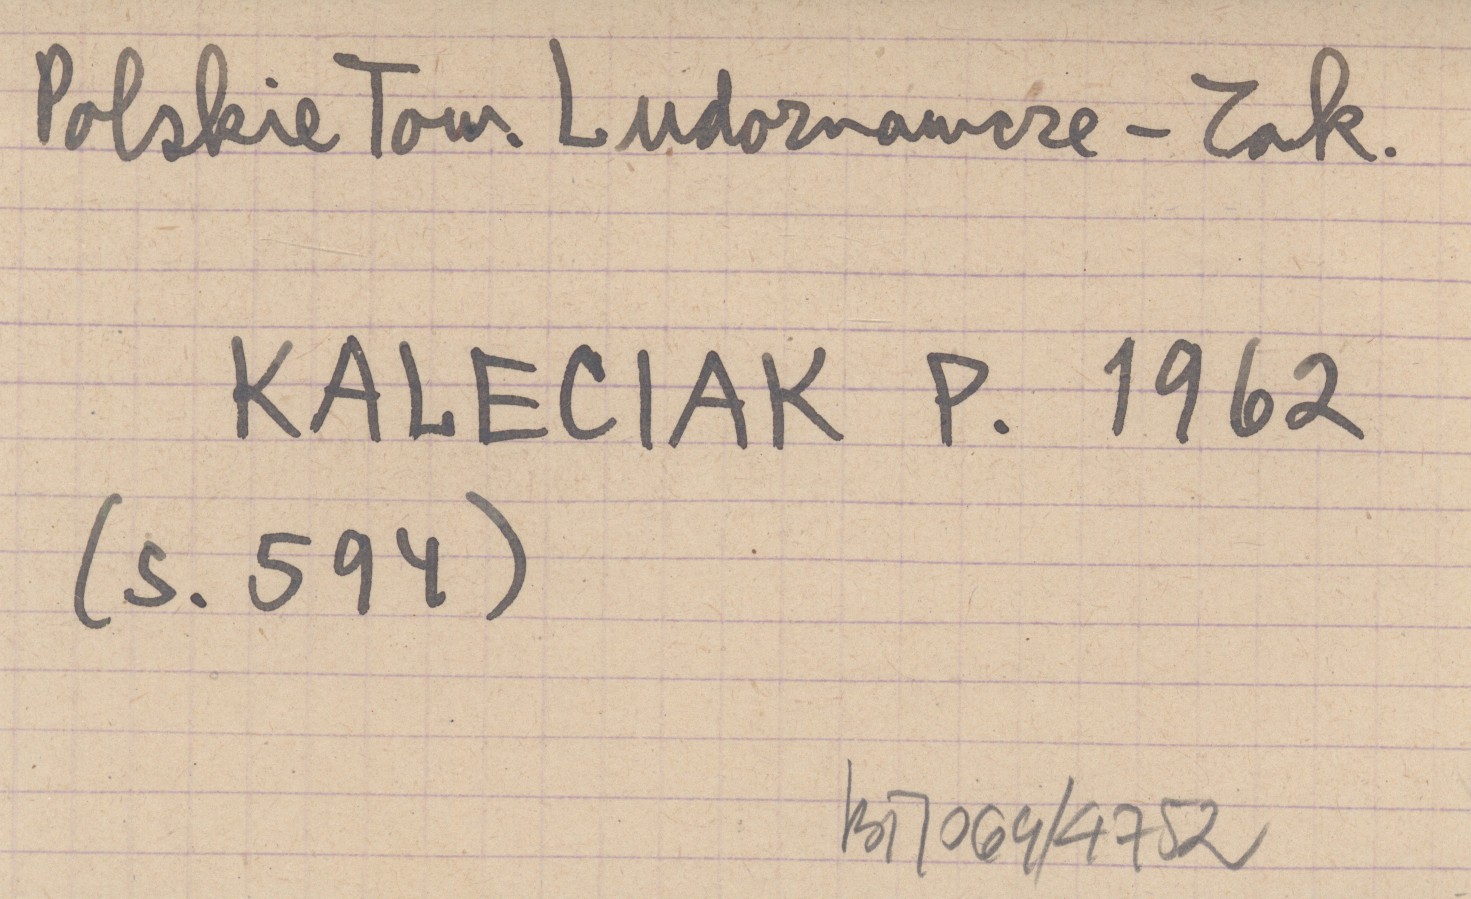 Polskie Tow. Ludoznawcze - Zak.
KALECIAK P. 1962
(s. 594)
064/4752